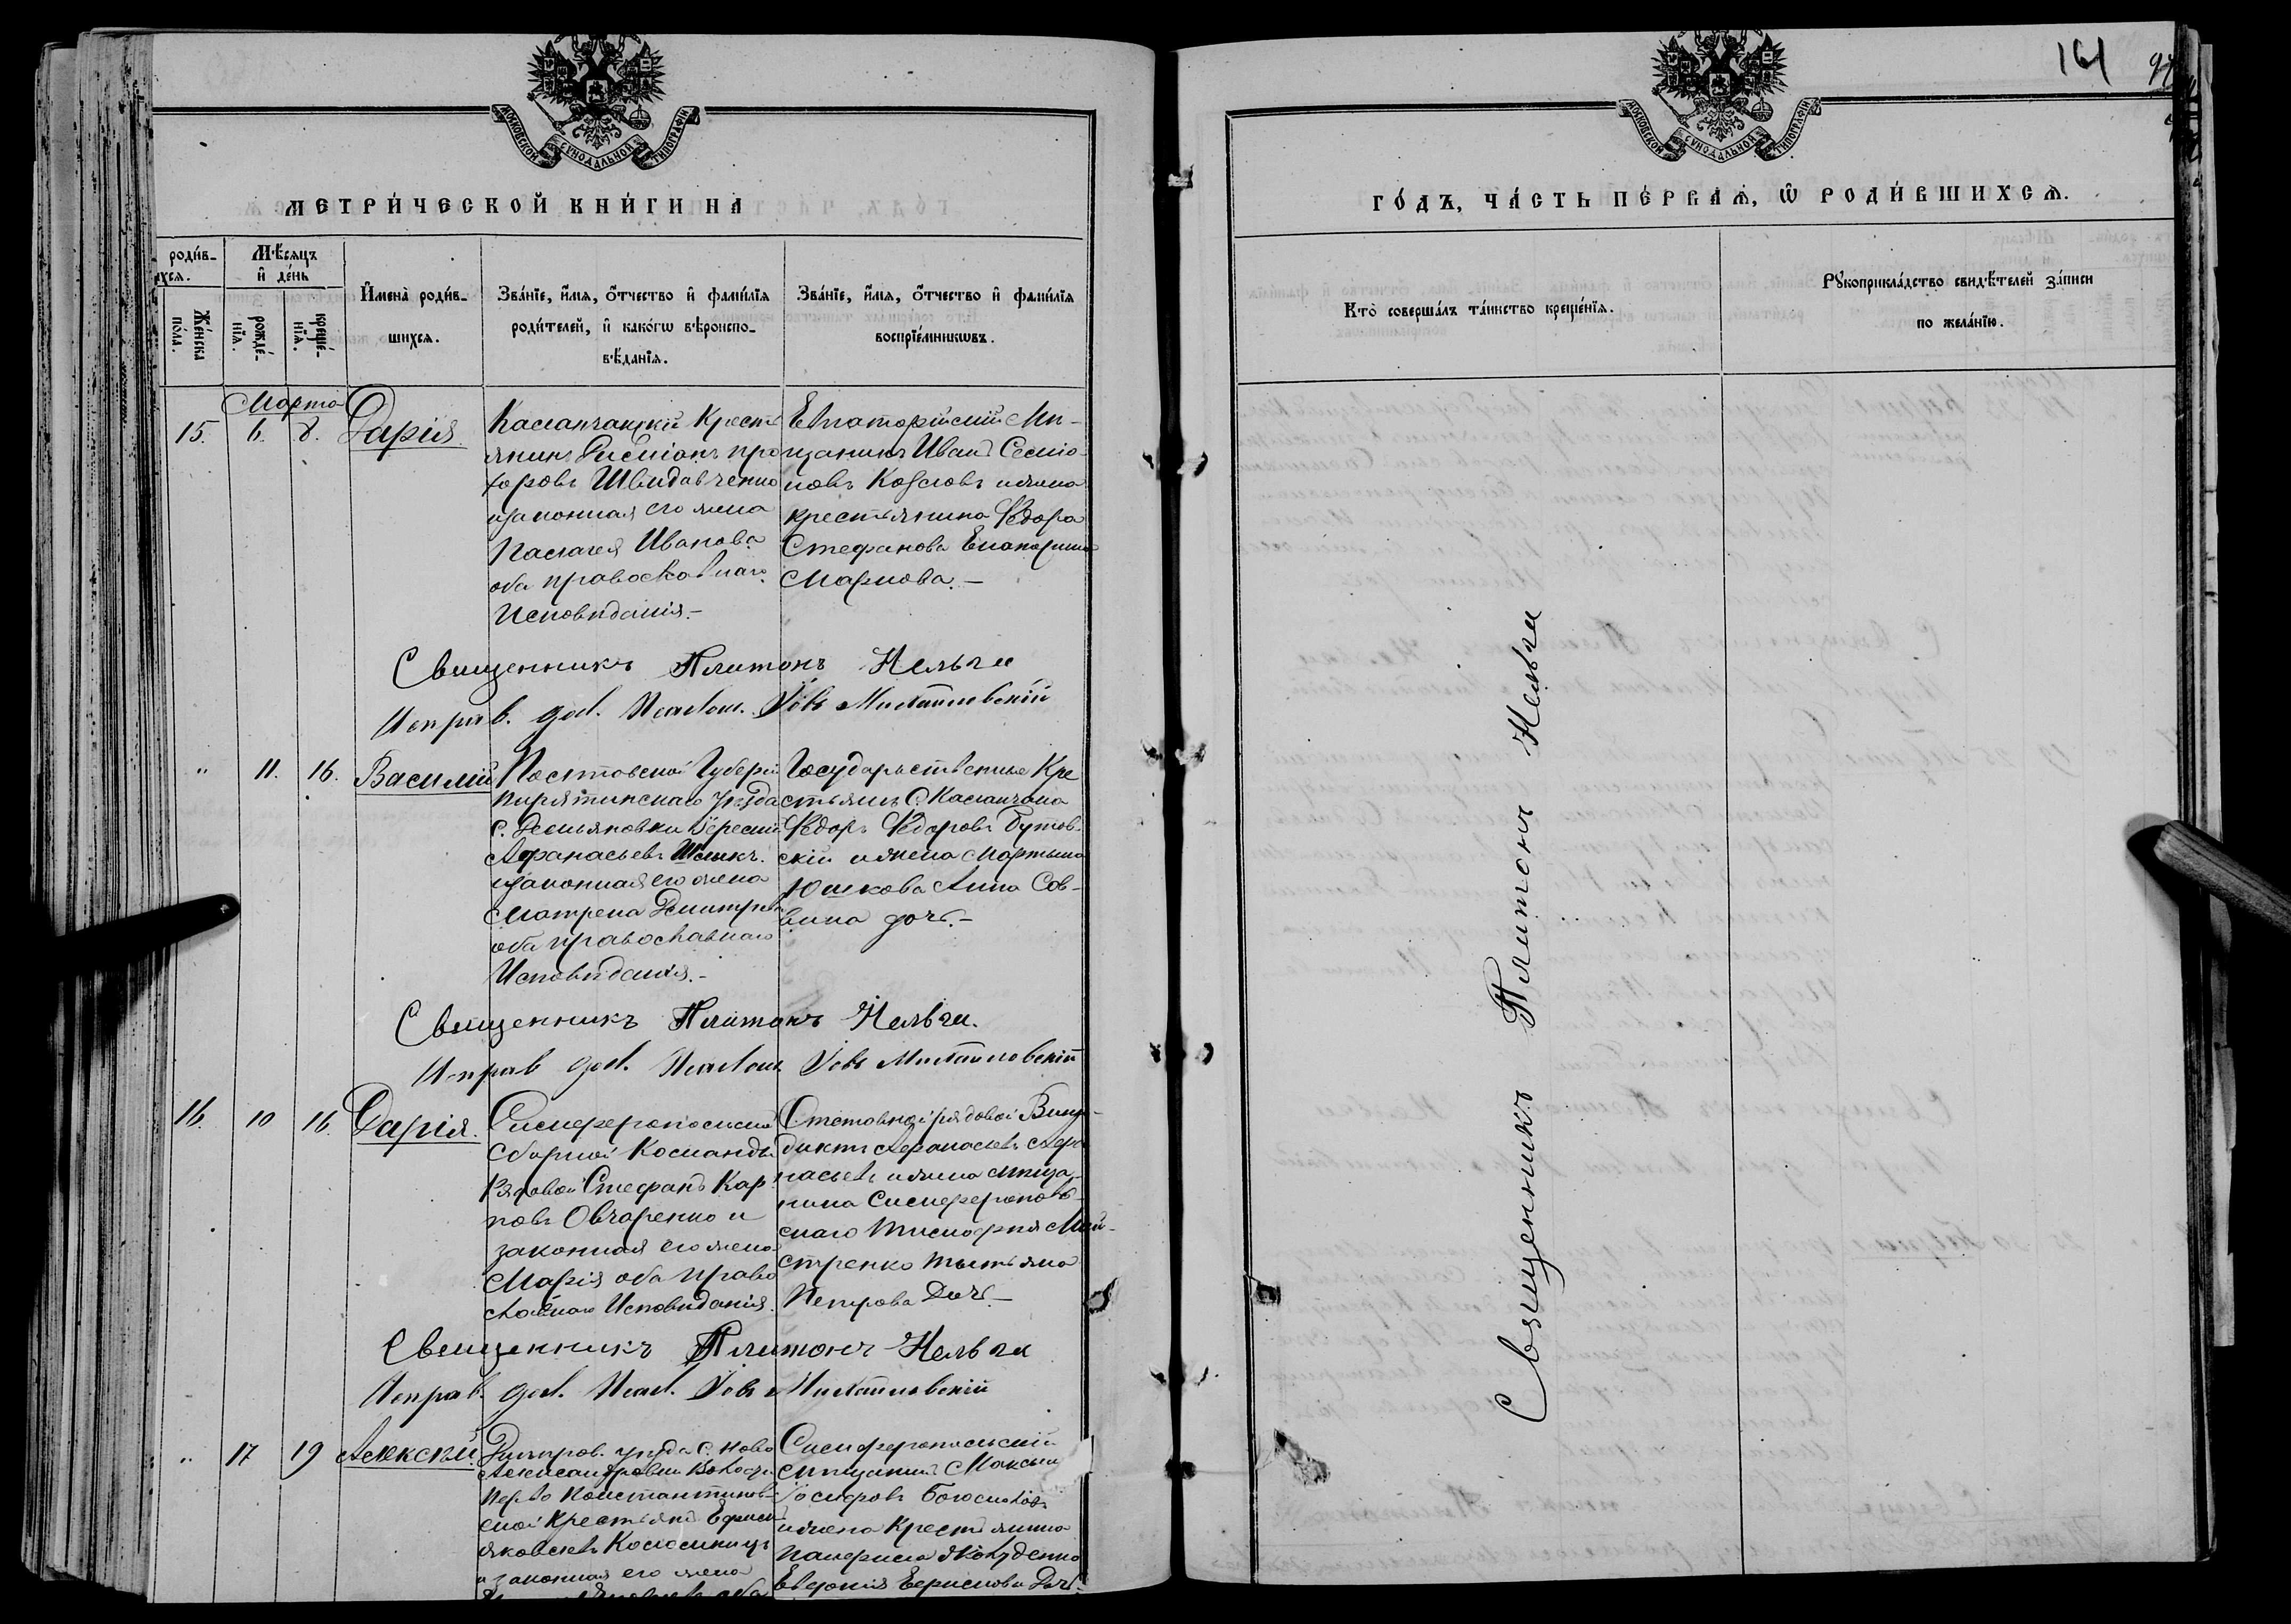 МОСКОВСКОЙ СѴНОДАЛЬНОЙ ТИПОГРАФІИ
МЕТРИ́ЧЕСКОЙ КНИ́ГИ НА
роди́в-
хся.
Мѣ́сяцъ
и҆ де́нь
Же́нска
по́ла.
рожде́-
нїѧ.
креще́-
нїѧ.
И҆мена̀ роди́в-
шихсѧ.
Зва́нїе, и҆́мѧ, ѻ҆́тчество и҆ фами́лїѧ
роди́телей, и҆ како́гѡ вѣ́роиспо-
вѣ́данїѧ.
Зва́нїе, и҆́мѧ, ѻ҆́тчество и҆ фами́лїѧ
воспрїе́мникѡвъ.
Марта
15. 6. 8. Дарія
Каланчацкій Кресть
янинъ Симіонъ Про
хоровъ Швидавченко
изаконная его жена
Палагея Иванова
оба православнаго
Исповѣданія.-
Евпаторійский Мѣ-
щанинъ Иванъ Семіо-
новъ Козловъ и жена
крестьянина Ѳедора
Стефанова Екатерина
Маркова.-
Священникъ Платонъ Нельга
Исправ. дол. Псалом. Іовъ Михайловскій
" 11. 16. Василій
Полтовской Губерніи
Пирятинскаго уѣзда
с. Демьяновки
Афанасьевъ
изаконная его жена
Матрена Дмитрева
оба православнаго
Исповѣданія.-
Государственные Кре
стьянъ С. Каланчака
Ѳедоръ Ѳедоровъ Бутов-
скій и жена Мартына
Юшкова Анна Сав-
вина дочь.-
Священникъ Платонъ Нельга.
Исправ дол. Псалом Іовъ Михайловскій
16. 10 16. Дарія.
Симферопольской
Сборной Команды
Рядовой Стефанъ Кар
повъ Овчаренко и
законная его жена
Марія оба право
славнаго Исповѣданія.
Отставной рядовой Вене-
диктъ Афанасьевъ Афа
насьевъ и жена Мѣща-
нина Симферополь-
скаго Тимофия Май-
стренко Татьяна
Петрова Дочь.-
Священникъ Платонъ Нельга
Исправ. дол. Псал. Іовъ Михайловскій
" 17 19 Алексѣй.
Днѣпров. уѣзда С. Ново
Александровки Волости
Перво Константинов-
ской Крестьянъ Ефим
Яковлевъ
и законная его жена
оба
Симферопольскій
Мѣщанинъ Максим
Іосифовъ
и жена Крестьянина
Евдокия Дочь-
161
МОСКОВСКОЙ СѴНОДАЛЬНОЙ ТИПОГРАФІИ
ГО́ДЪ, ЧА́СТЬ ПЕ́РВАѦ, Ѡ҆ РОДИ́ВШИХСѦ.
Кто̀ соверша́лъ та́инство креще́нїѧ.
Рꙋкоприкла́дство свидѣ́телей за́писи
по жела́нїю.
Священникъ Платонъ Нельга